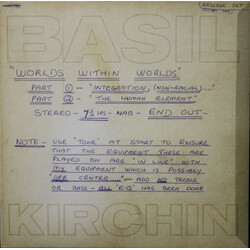 BASIL
RESERVE SET
"WORLDS WITHIN WORLDS"
PART ① - "INTEGRATION, (NON-RACIAL)..."
PART ② - "THE HUMAN ELEMENT"
STEREO - 7½ IPS - NAB - END OUT -
NOTE - USE "TONE" AT START TO ENSURE
THAT THE EQUIPMENT THESE ARE
PLAYED ON ARE "IN LINE" WITH
MY EQUIPMENT WHICH IS POSSIBLY
OFF CENTER....- ADD NO TREBLE
OR BASS - ALL "EQ" HAS BEEN DONE
KIRCHIN